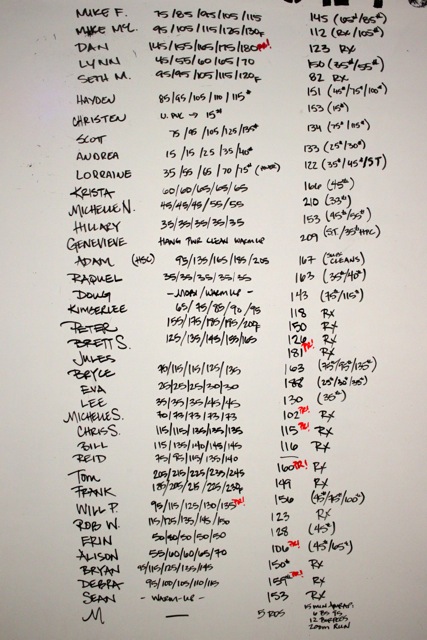 MIKE F. 75/85/95/105/115 145 (105#/85#)
MIKE MCL. 95/105/115/125/130F 112 (RX/105#)
DAN 145/155/165/175/180 PR! 123 RX
LYNN 45/55/60/65/70 150 (35#/55#)
SETH M. 95/95/105/115/120F 82 RX
HAYDEN 85/95/105/110/115# 151 (45#/75#/100#)
CHRISTEN 15# 153 (15#)
SCOTT 75/95/105/125/135# 134 (75#/115#)
ANDREA 15/15/25/35/40# 133 (25#/30#)
LORRAINE 35/55/65/70/75# 122 (35#/45#/ST)
KRISTA 60/60/65/65/65 166 (45#)
MICHELLE N. 45/45/45/55/55 210 (33#)
HILLARY 35/35/35/35/35 153 (45#/55#)
GENEVIEVE HANG PWR CLEAN WARMUP 209
ADAM (HSC) 95/135/165/185/205 167 CLEANS)
RAQUEL 35/35/35/35/35 163 (35#/40#)
DOUG WARMUP - 143 (75#/115#)
KIMBERLEE 65/75/85/90/95 118 RX
PETER 155/175/185/195/207 150 RX
BRETT S. 125/135/145/155/165 126 RX
JULES 181 PR! RX
BRYCE 90/115/115/125/135 163 (75#/95#/135#)
EVA 25/25/25/30/30 188 (25#/30#/35#)
LEE 35/35/35/45/45 130 (35#)
MICHELLE S. 70/73/73/73/73 102 PR! RX
CHRIS S. 115/115/135/135/135 115 PR! RX
BILL 115/135/140/145/145 116 RX
REID 75/95/115/135/140 —
TOM 205/215/225/235/245 160 PR! RX
FRANK 185/205/215/225/230F 149 RX
WILL P. 95/115/125/130/135 PR! 156 (45#/75#/100#)
ROB W. 115/125/135/145/150 123 RX
ERIN 50/50/50/50/50 128 (45#)
ALISON 55/60/60/65/70 106 PR! (45#/65#)
BRYAN 95/115/125/135/145 150 RX
DEBRA 95/100/105/110/115 155 PR! RX
SEAN - WARM-UP - 153 RX
M — 5 RDS 15 MIN AMRAP:
12 BURPEES
200M RUN